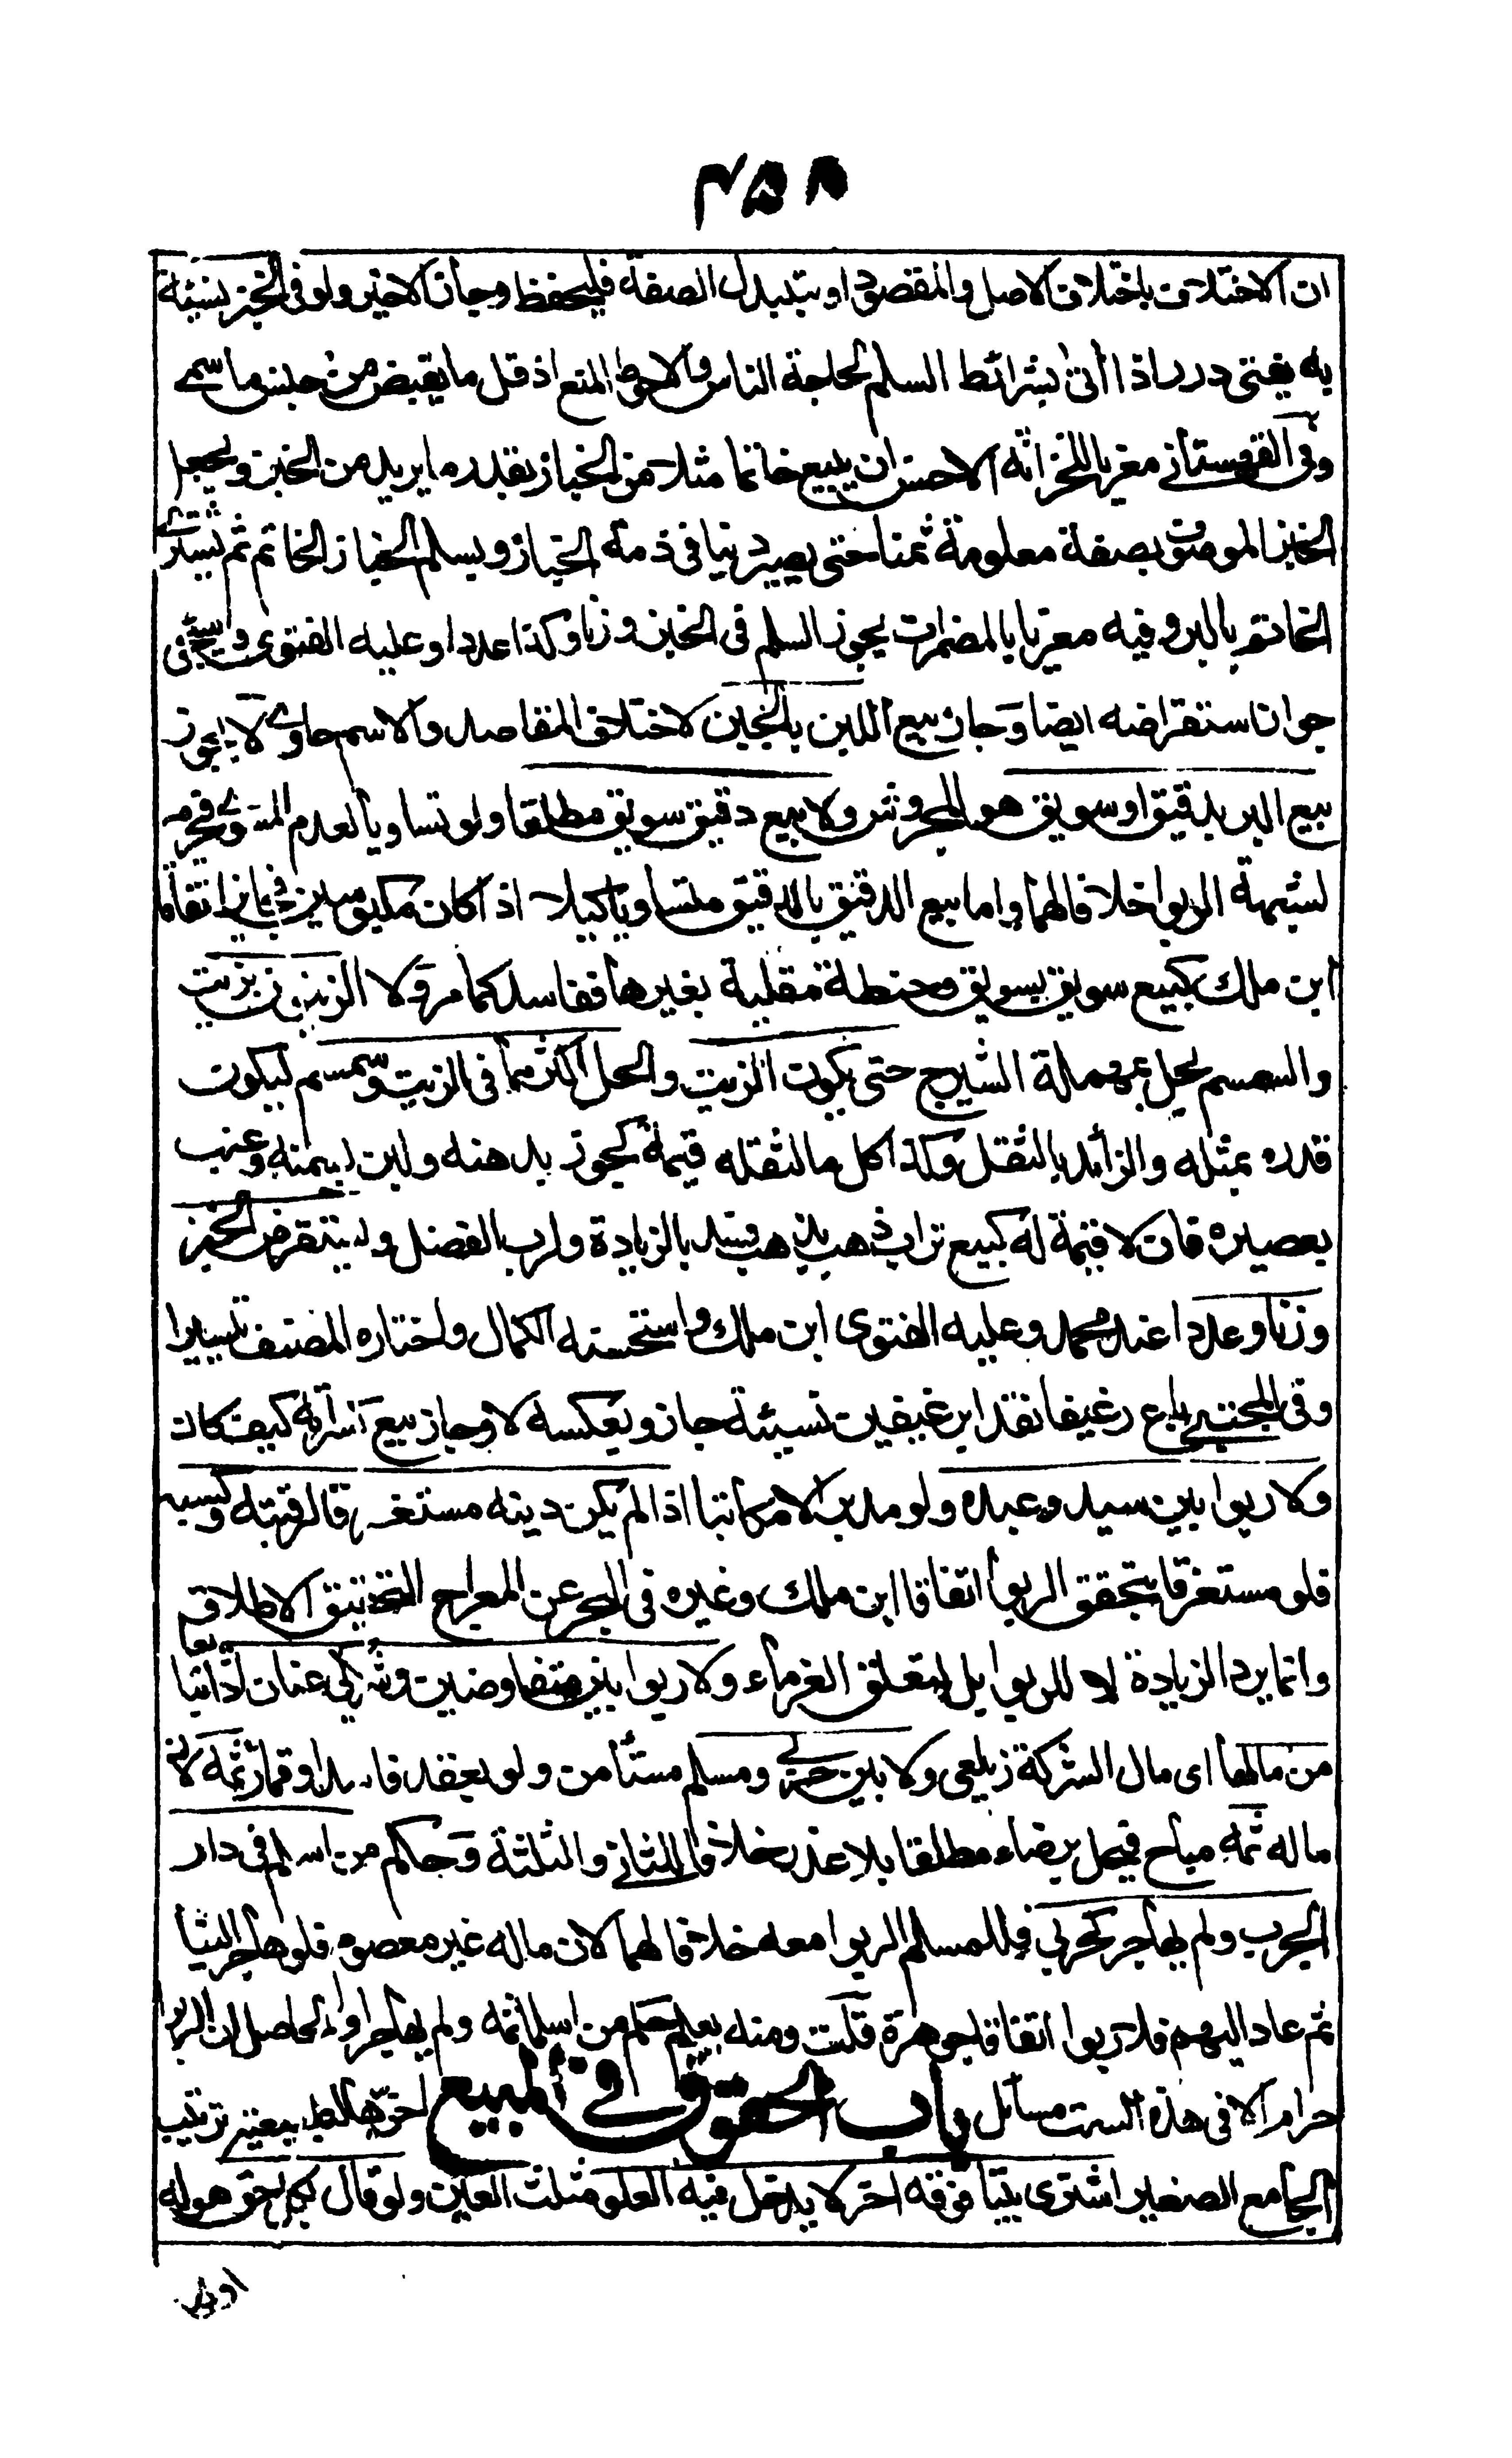 ٢٥٨
ان الاختلاف باختلاف الاصل والمقصود او بتبدل الصفة فليحفظ وجاز الاخير ولو فى الخبز نسيئة
به يفتى درر اذا اتى بشرائط السلم لحاجة الناس والاحوط المنع اذ قل ما يقبض من جنس ما سمى
وفى القهستانى معزيا للخزانة الاحسن ان يبيع خاتما مثلا من الخباز بقدر ما يريد من الخبز ويجعل
الخبز الموصوف بصفة معلومة ثمنا حتى يصير دينا فى ذمة الخباز ويسلم الخباز الخاتم ثم يشترى
الخاتم بالبر وفيه معزيا بالمضمرات يجوز السلم فى الخبز وزنا وكذا عددا وعليه الفتوى وسيجئ
جواز استقراضه ايضا وجاز بيع اللبن بالجبن لاختلاف المقاصد والاسم حاوى لا يجوز
بيع البر بدقيق او سويق هو المجروش ولا بيع دقيق بسويق مطلقا ولو تساويا لعدم المسوى فيحرم
لشبهة الربوا خلافا لهما واما بيع الدقيق بالدقيق متساويا كيلا اذا كان مكبوسين فجايز اتفاقا
ابن ملك كبيع سويق بسويق وحنطة مقلية بغيرها ففاسد كما مر ولا الزيتون بزيت
والسمسم بحل بمهملة الشيرج حتى يكون الزيت والحل اكثر مما فى الزيت وسمسم ليكون
قدره بمثله والزائد بالثقل وكذا كل ما لثقله قيمة كجوز بدهنه ولبن بسمنه وعنب
بعصيره فان لا قيمة له كبيع تراب ذهب بذهب فسد بالزيادة ولرب الفضل ويستقرض الخبز
وزنا وعددا عند محمد وعليه الفتوى ابن ملك واستحسنه الكمال واختاره المصنف تيسيرا
وفى المجتبى باع رغيفا نقدا برغيفين نسيئة جاز وبعكسه لا وجاز بيع كسراته كيف كان
ولا ربوا بين سيد وعبده ولو مدبرا لا مكاتبا اذا لم يكن دينه مستغرقا لرقبته وكسبه
فلو مستغرقا يتحقق الربوا اتفاقا ابن ملك وغيره فى البحر عن المعراج التحقيق الاطلاق
وانما يرد الزيادة لا للربوا بل لتعلق الغرماء ولا ربوا بين متفاوضين وشريكى عنان اذا تبايعا
من مالها اى مال الشركة زيلعى ولا بين حربى ومسلم مستأمن ولو بعقد فاسد او قمار ثمه لان
ماله ثمه مباح فيحل برضاه مطلقا بلا عذر خلافا للثانى والثلثة وحكم من اسلم فى دار
الحرب ولم يهاجر كحربى فللمسلم الربوا معه خلافا لهما لان ماله غير معصوم فلو هاجر الينا
ثم عاد اليهم فلا ربوا اتفاقا جوهرة قلت ومنه يعلم حكم من اسلما ثمه ولم يهاجرا والحاصل ان الربوا
حرام الا فى هذه الست مسائل باب الحقوق فى المبيع اخرها لتبعيتها ترتيب
الجامع الصغير اشترى بيتا فوقه اخر لا يدخل فيه العلو مثلث العين ولو قال بكل حق هو له